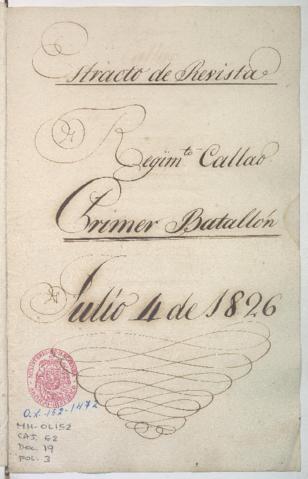 Estracto de Revista
Regim.to Callao
Primer Batallón
Julio 4 de 1826
O.L. 152-1472
MH-OL152
CAJ. 62
Doc. 19
FOL. 3